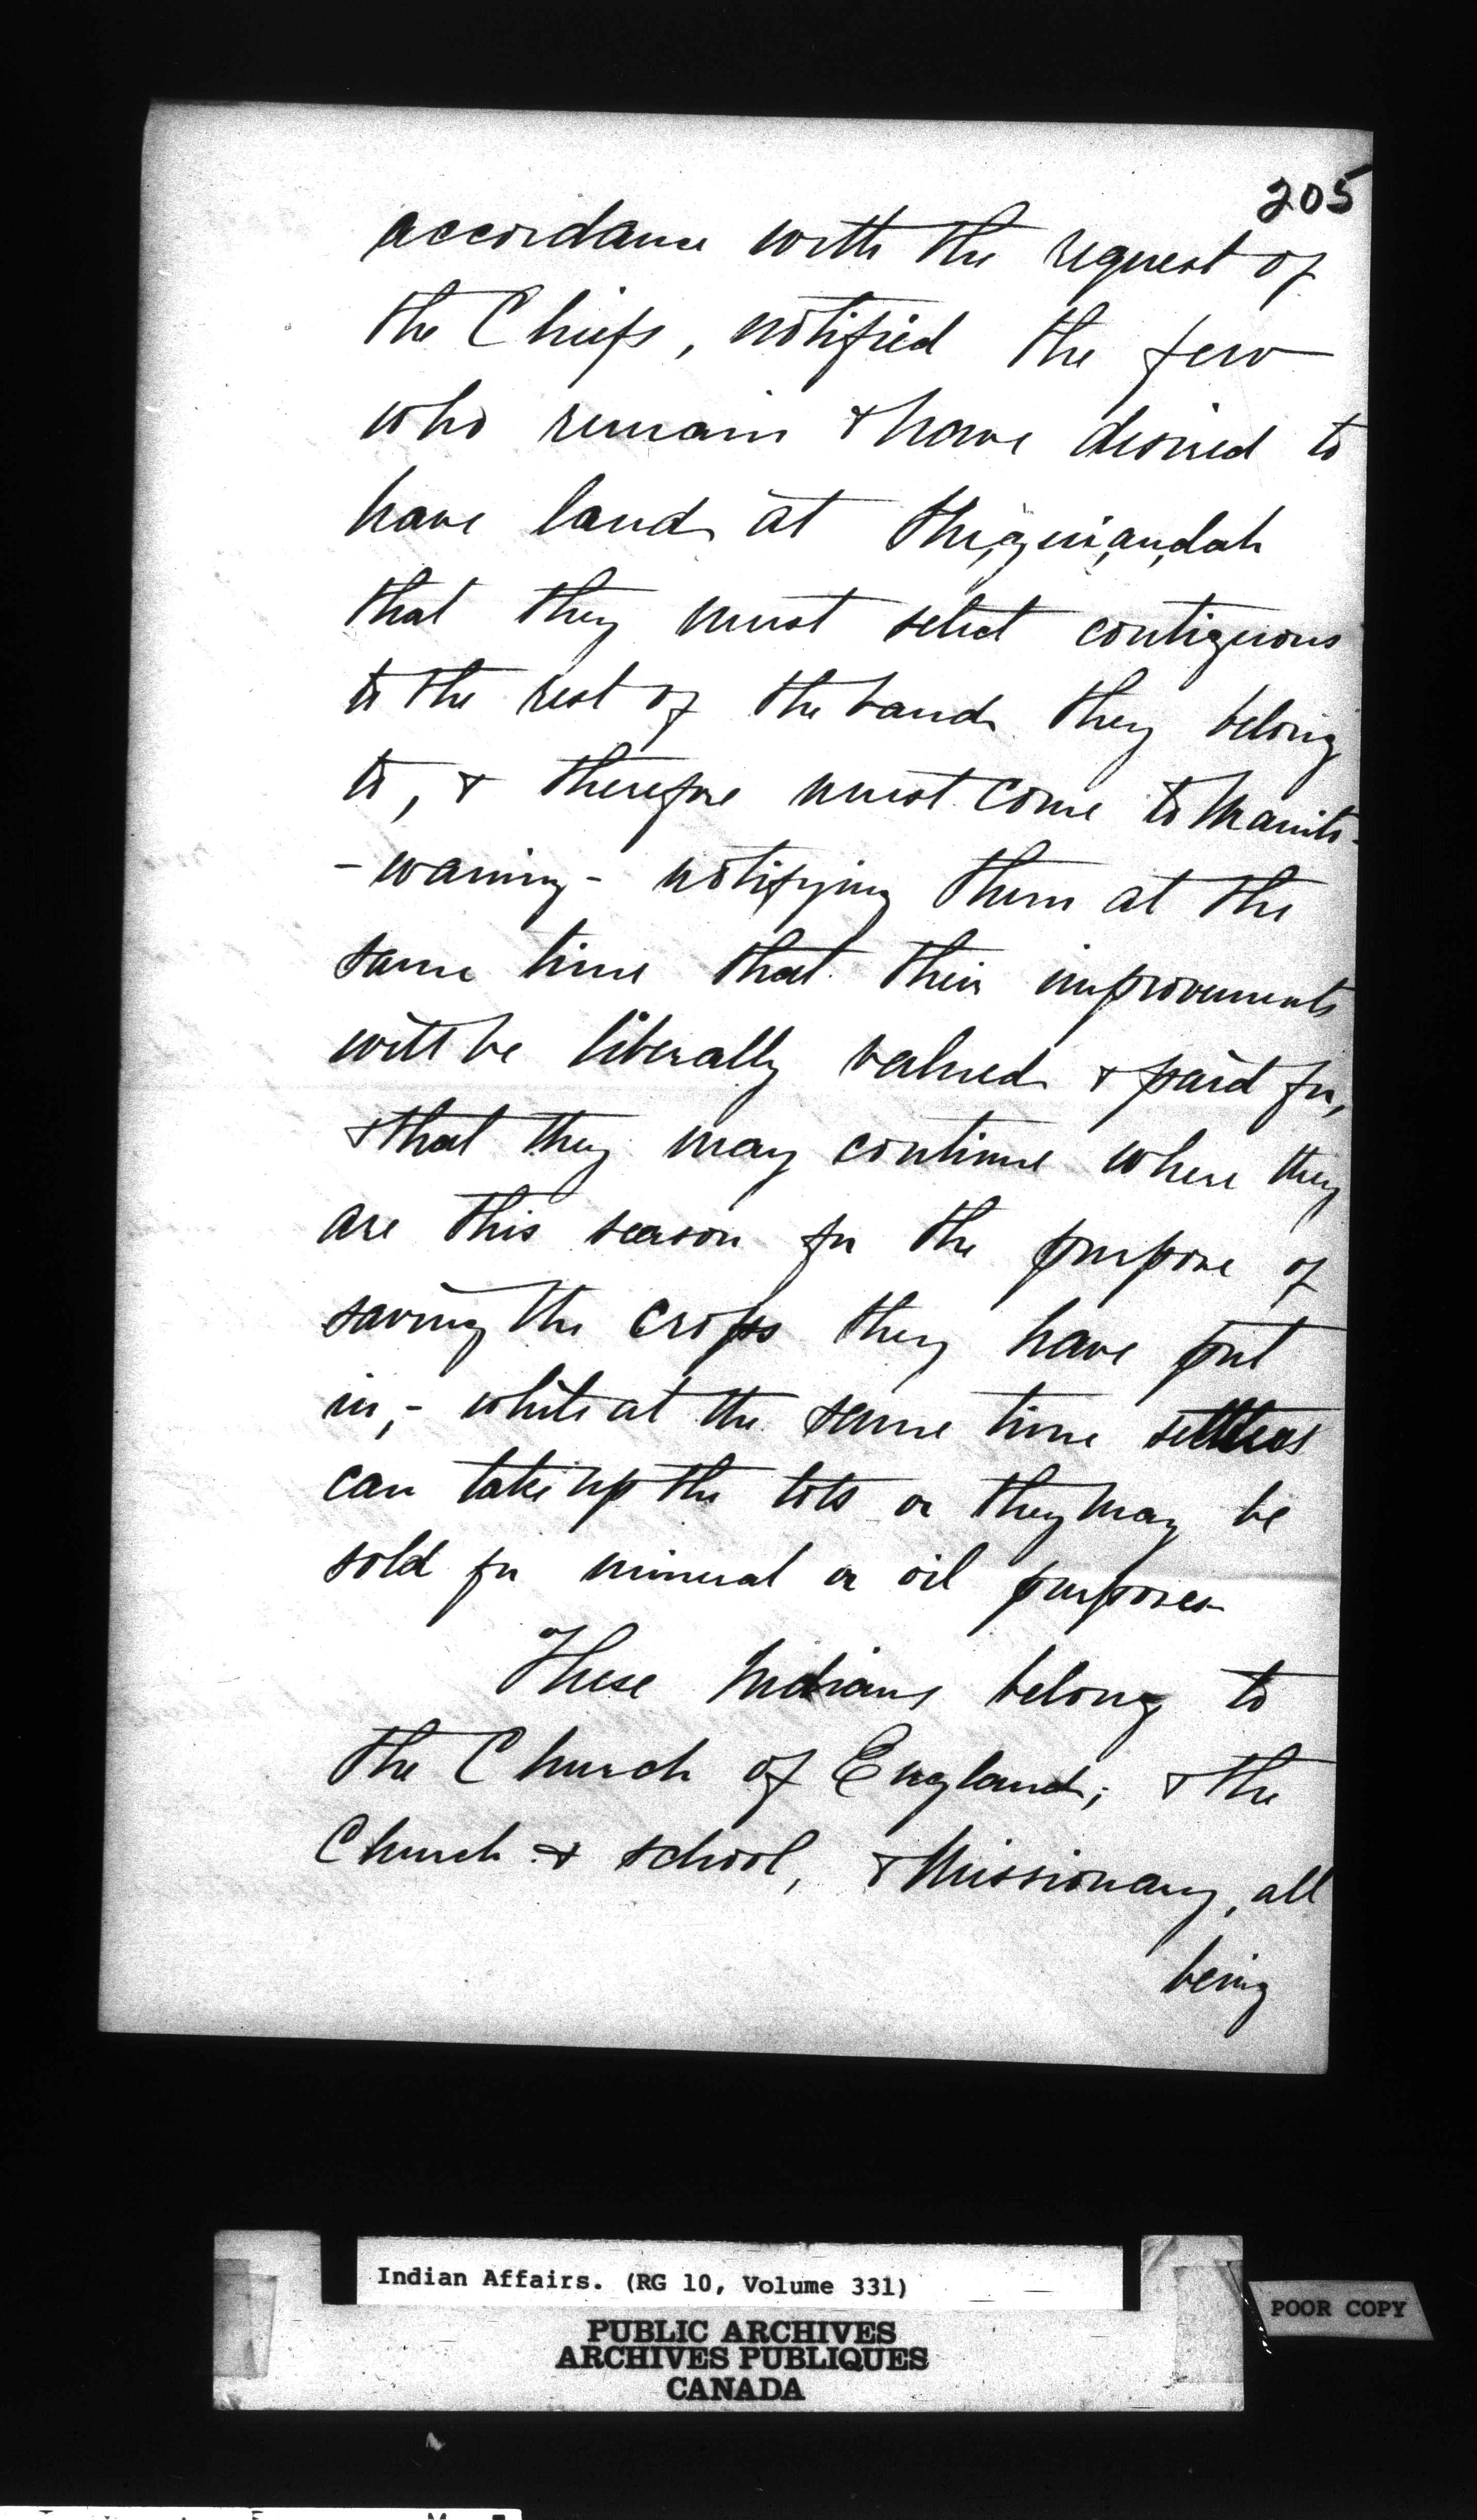 205
accordance with the request of
the Chiefs, notified the few
who remain & have desired to
have land at
that they must select contiguous
to the rest of the band they belong
to, & therefore must come to Manito-
-waning - notifying them at the
same time that their improvements
will be liberally valued & paid for,
& that they may continue where they
are this season for the purpose of
saving the crops they have put
in, - while at the same time settlers
can take up the lots or they may be
sold for mineral or oil purposes
These Indians belong to
the Church of England; & the
Church & school, & Missionary, all
being
Indian Affairs. (RG 10, Volume 331)
PUBLIC ARCHIVES
ARCHIVES PUBLIQUES
CANADA
POOR COPY